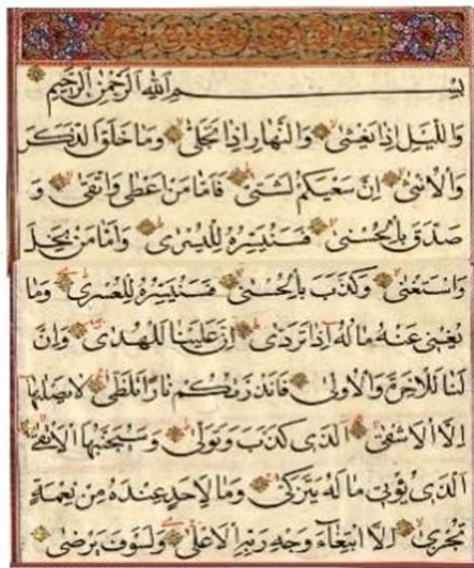 بِسْمِ اللهِ الرَّحْمٰنِ الرَّحِيْمِ
وَاللَّيْلِ اِذَا يَغْشٰى وَالنَّهَارِ اِذَا تَجَلّٰى وَمَا خَلَقَ الذَّكَرَ
وَالْاُنْثٰى اِنَّ سَعْيَكُمْ لَشَتّٰى فَاَمَّا مَنْ اَعْطٰى وَاتَّقٰى وَ
صَدَّقَ بِالْحُسْنٰى فَسَنُيَسِّرُهُ لِلْيُسْرٰى وَاَمَّا مَنْ بَخِلَ
وَاسْتَغْنٰى وَكَذَّبَ بِالْحُسْنٰى فَسَنُيَسِّرُهُ لِلْعُسْرٰى وَمَا
يُغْنِى عَنْهُ مَالُهُ اِذَا تَرَدّٰى اِنَّ عَلَيْنَا لَلْهُدٰى وَاِنَّ
لَنَا لَلْاٰخِرَةَ وَالْاُوْلٰى فَاَنْذَرْتُكُمْ نَارًا تَلَظّٰى لَا يَصْلٰيهَا
اِلَّا الْاَشْقٰى الَّذِى كَذَّبَ وَتَوَلّٰى وَسَيُجَنَّبُهَا الْاَتْقٰى
الَّذِى يُؤْتِى مَالَهُ يَتَزَكّٰى وَمَا لِاَحَدٍ عِنْدَهُ مِنْ نِعْمَةٍ
تُجْزٰى اِلَّا ابْتِغَآءَ وَجْهِ رَبِّهِ الْاَعْلٰى وَلَسَوْفَ يَرْضٰى